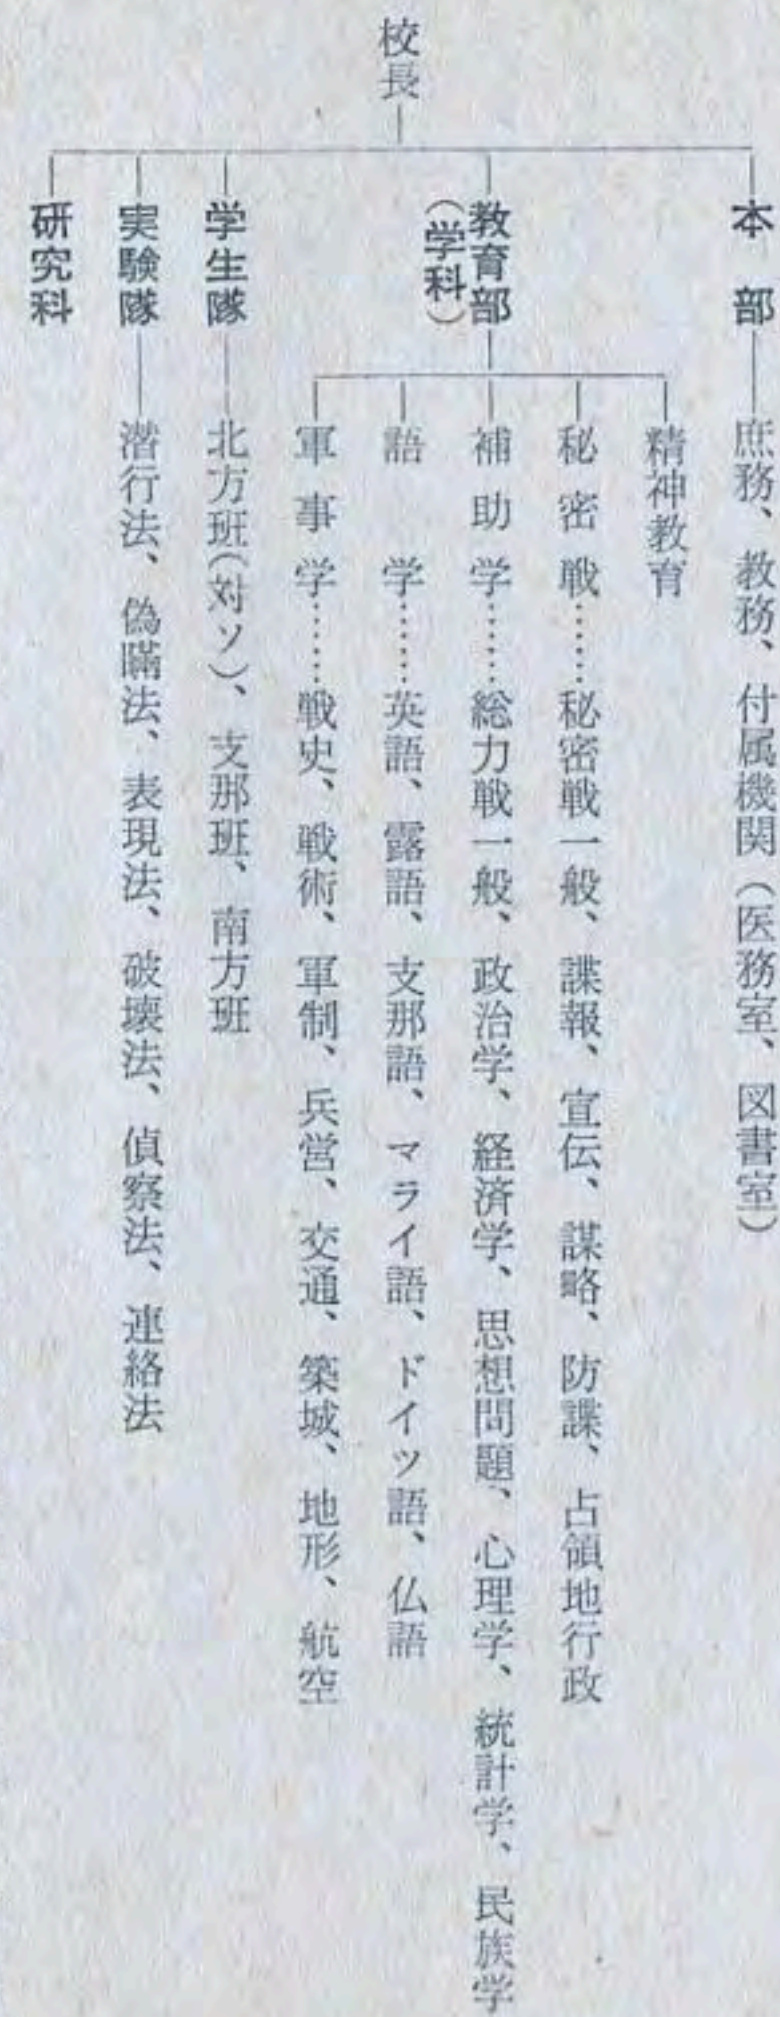 校長
本部
庶務、教務、付属機関（医務室、図書室）
教育部
（学科）
精神教育
秘密戦……秘密戦一般、諜報、宣伝、謀略、防諜、占領地行政
補助学……総力戦一般、政治学、経済学、思想問題、心理学、統計学、民族学
語学……英語、露語、支那語、マライ語、ドイツ語、仏語
軍事学……戦史、戦術、軍制、兵営、交通、築城、地形、航空
学生隊
北方班（対ソ）、支那班、南方班
実験隊
潜行法、偽瞞法、表現法、破壊法、偵察法、連絡法
研究科